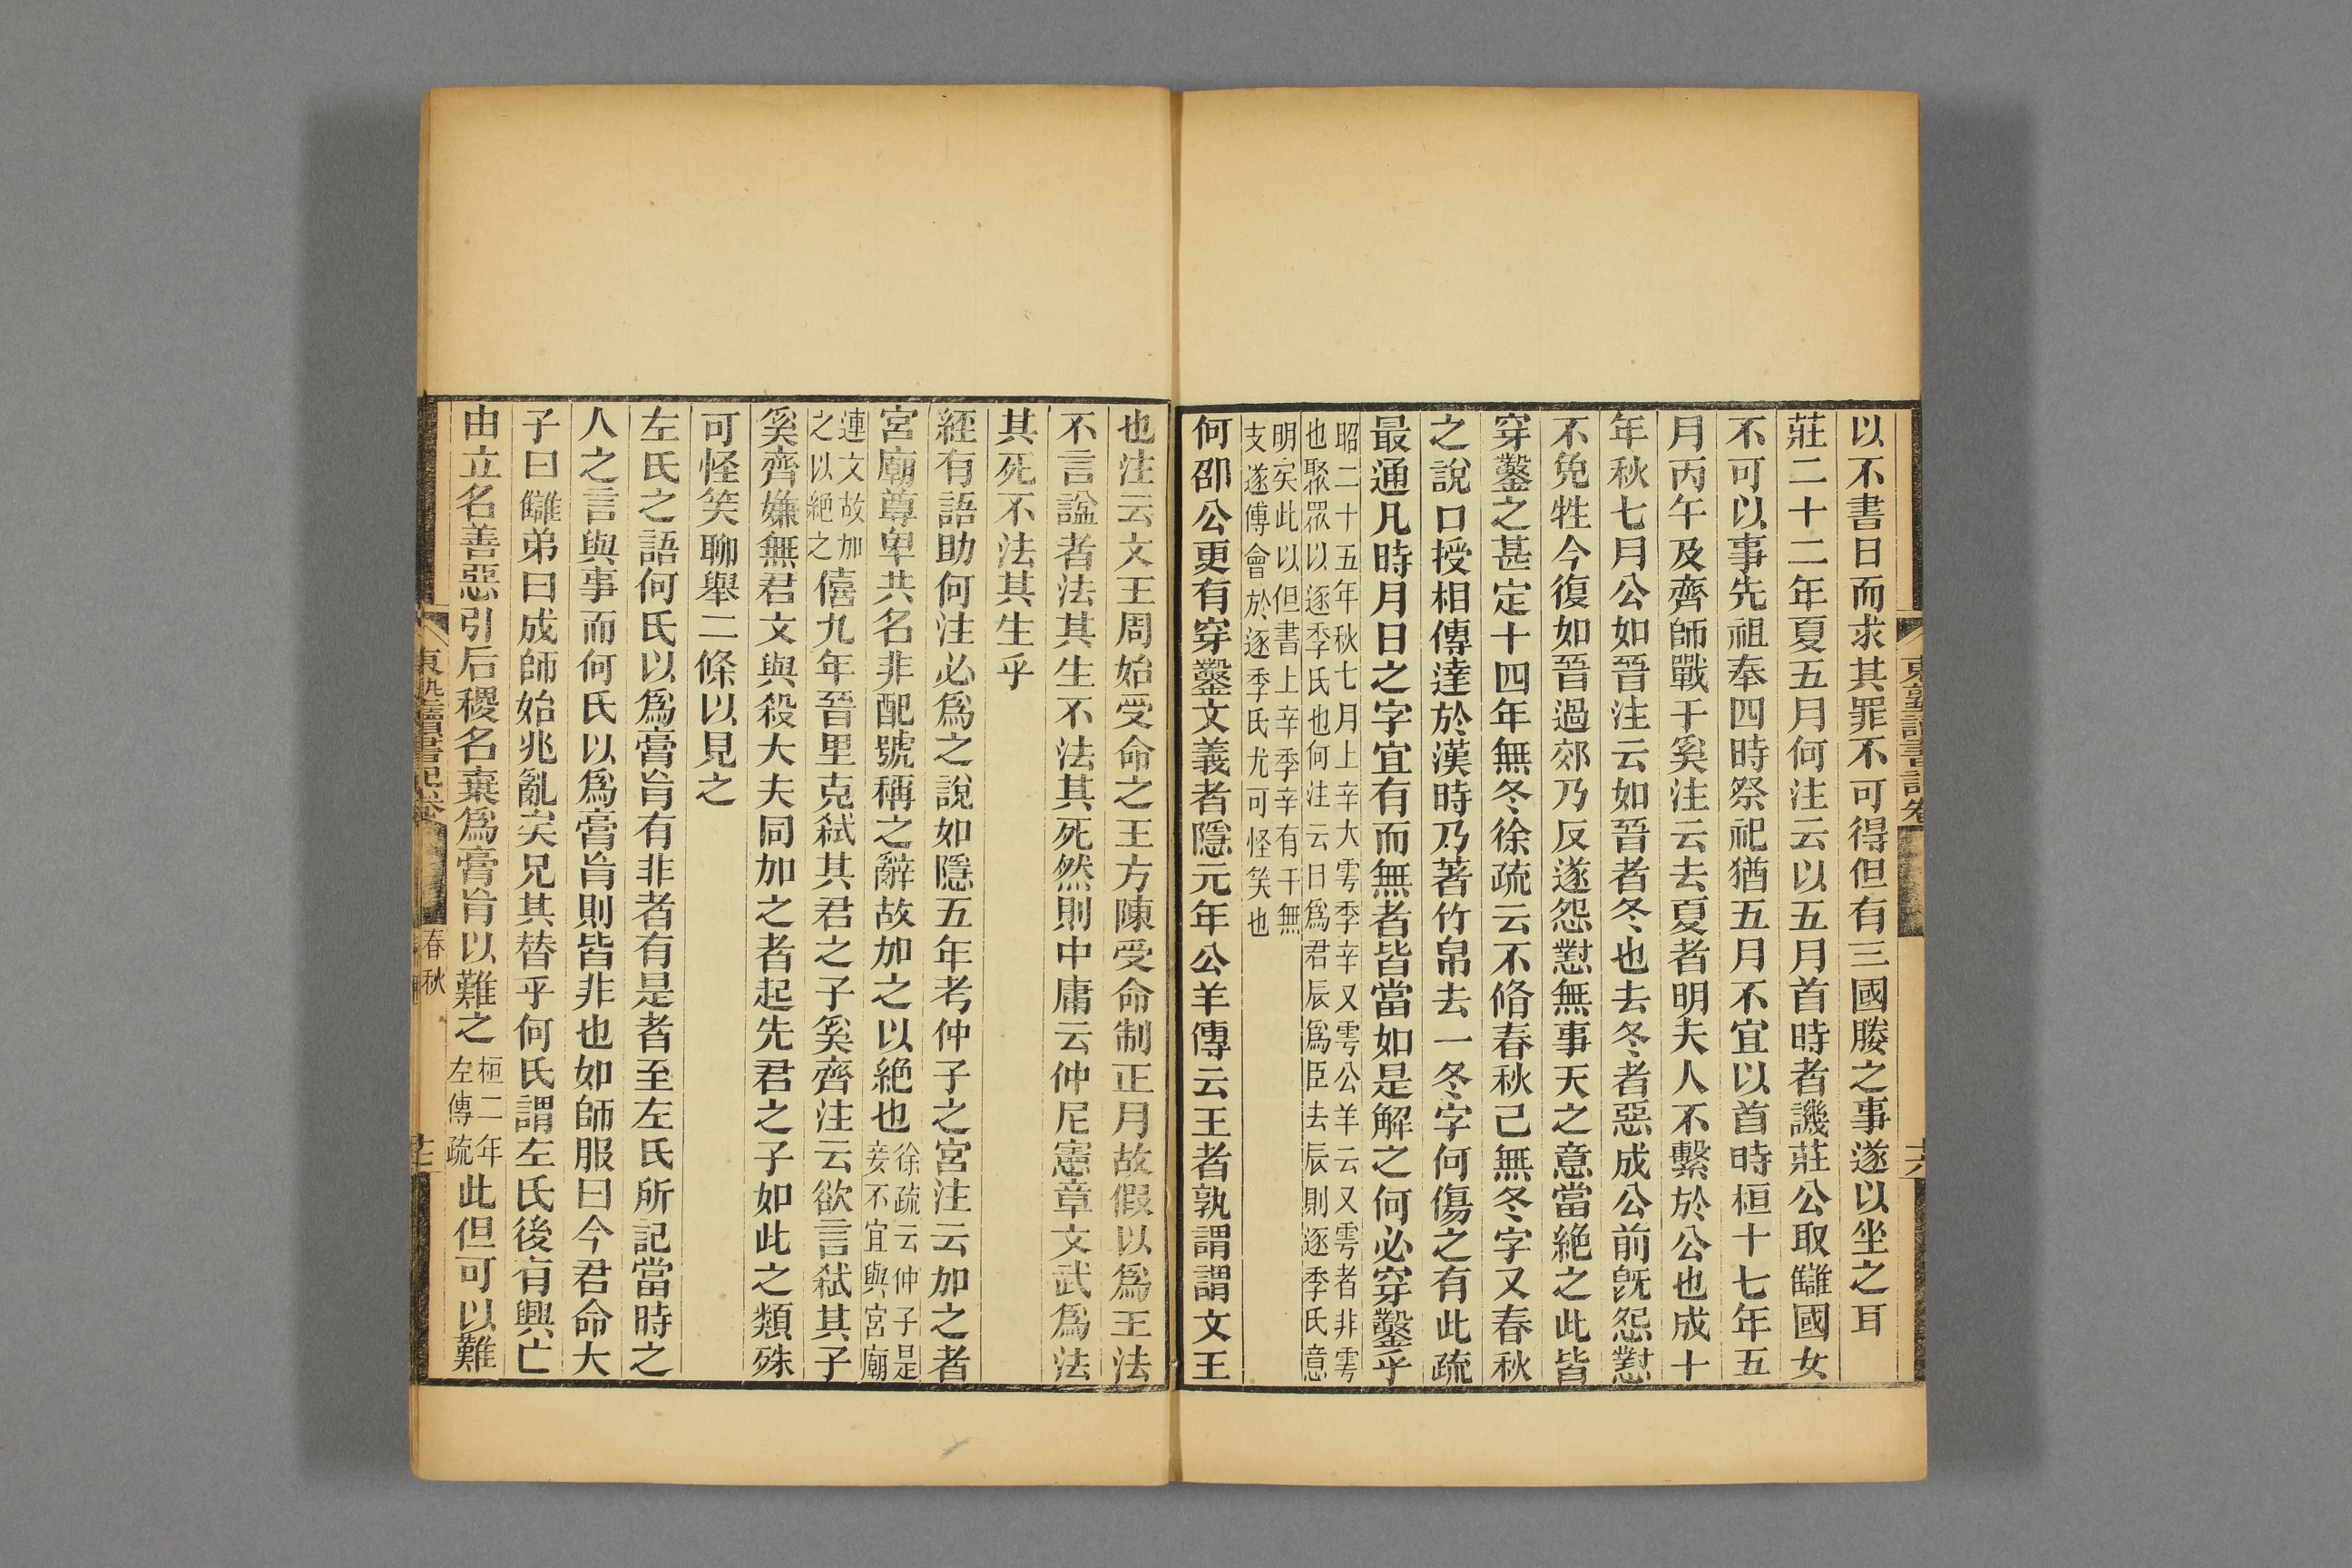 以不書日而求其罪不可得但有三國媵之事遂以坐之耳
莊二十二年夏五月何注云以五月首時者譏莊公取讎國女
不可以事先祖奉四時祭祀猶五月不宜以首時桓十七年五
月丙午及齊師戰于奚注云去夏者明夫人不繫於公也成十
年秋七月公如晉注云如晉者冬也去冬者惡成公前旣怨懟
不免牲今復如晉過郊乃反遂怨懟無事天之意當絶之此皆
穿鑿之甚定十四年無冬徐疏云不脩春秋己無冬字又春秋
之說口授相傳達於漢時乃著竹帛去一冬字何傷之有此疏
最通凡時月日之字宜有而無者皆當如是解之何必穿鑿乎
昭二十五年秋七月上辛大雩季辛又雩公羊云又雩者非雩
也聚眾以逐季氏也何注云日爲君辰爲臣去辰則逐季氏意
明矣此以但書上辛季辛有干無
支遂傅會於逐季氏尤可怪笑也
何邵公更有穿鑿文義者隱元年公羊傳云王者孰謂謂文王
也注云文王周始受命之王方陳受命制正月故假以爲王法
不言諡者法其生不法其死然則中庸云仲尼憲章文武爲法
其死不法其生乎
經有語助何注必爲之說如隱五年考仲子之宮注云加之者
宮廟尊卑共名非配號稱之辭故加之以絶也
徐疏云仲子是
妾不宜與宮廟
連文故加
之以絶之
僖九年晉里克弑其君之子奚齊注云欲言弑其子
奚齊嫌無君文與殺大夫同加之者起先君之子如此之類殊
可怪笑聊舉二條以見之
左氏之語何氏以爲膏肓有非者有是者至左氏所記當時之
人之言與事而何氏以爲膏肓則皆非也如師服曰今君命大
子曰讎弟曰成師始兆亂矣兄其替乎何氏謂左氏後有興亡
由立名善惡引后稷名棄爲膏肓以難之
桓二年
左傳疏
此但可以難
東塾讀書記卷
春秋